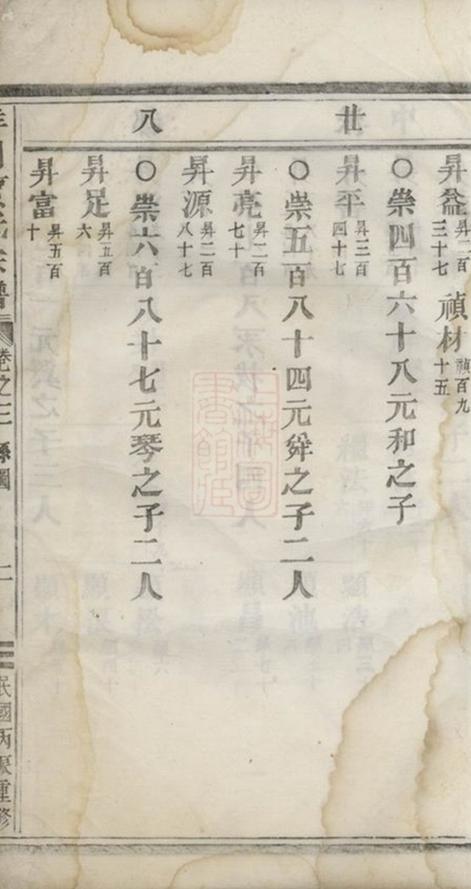 廿
八
昇益 昇二百三十七 禎材 禎百九十五
○崇四百六十八元和之子
昇平 昇三百四十七
○崇五百八十四元舜之子二人
昇亮 昇二百七十
昇源 昇二百八十七
○崇六百八十七元琴之子二人
昇足 昇五百六
昇富 昇五百十
宗譜 卷之三 系圖 二 民國丙辰重修
上海圖書館藏